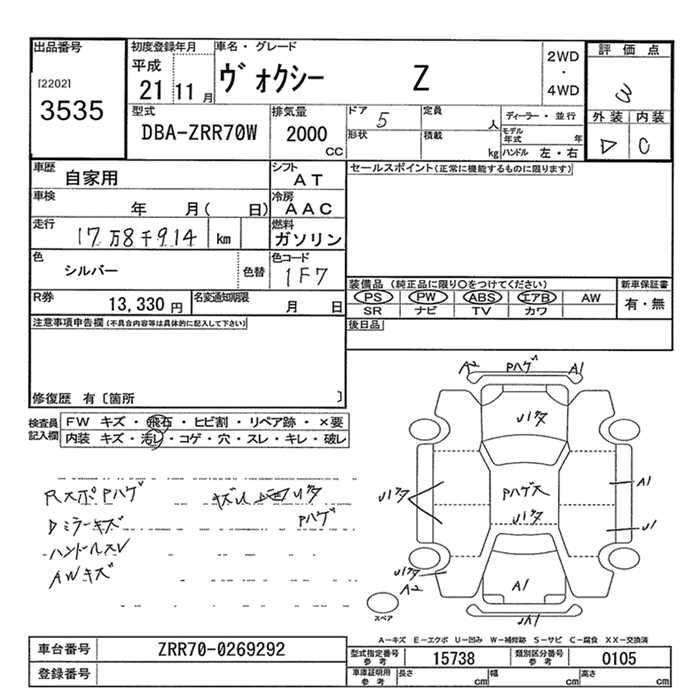 出品番号
[2202]
3535
初度登録年月
平成
21 11 月
車名・グレード
ヴォクシー Z
2WD
・
4WD
評価点
外装 内装
C
型式
DBA-ZRR70W
排気量
2000
CC
ドア 5
定員
人
形状
積載
kg
ディーラー・並行
モデル年式
年
ハンドル 左・右
車歴
自家用
シフト
AT
車検
年 月( 日)
冷房
AAC
走行
17万8千914 km
燃料
ガソリン
色
シルバー
色替
色コード
1F7
R券
13,330 円
名変通知期限
月 日
セールスポイント(正常に機能するものに限ります)
装備品(純正品に限り○をつけてください)
PS PW ABS エアB AW
SR ナビ TV カワ
新車保証書
有・無
後日品
注意事項申告欄(不具合内容等は具体的に記入して下さい)
修復歴 有〔箇所 〕
検査員
記入欄
FW キズ・飛石・ヒビ割・リペア跡・×要
内装 キズ・汚レ・コゲ・穴・スレ・キレ・破レ
RスポPハゲ
Dミラーキズ
ハンドルスレ
AWキズ
Pハゲ
A2 Pハゲ A1
A1
A1
A2
スペア
A-キズ E-エクボ U-凹み W-補修跡 S-サビ C-腐食 XX-交換済
車台番号
ZRR70-0269292
登録番号
型式指定番号
参考
15738
類別区分番号
参考
0105
車庫証明用
参考
長さ cm
幅 cm
高さ cm